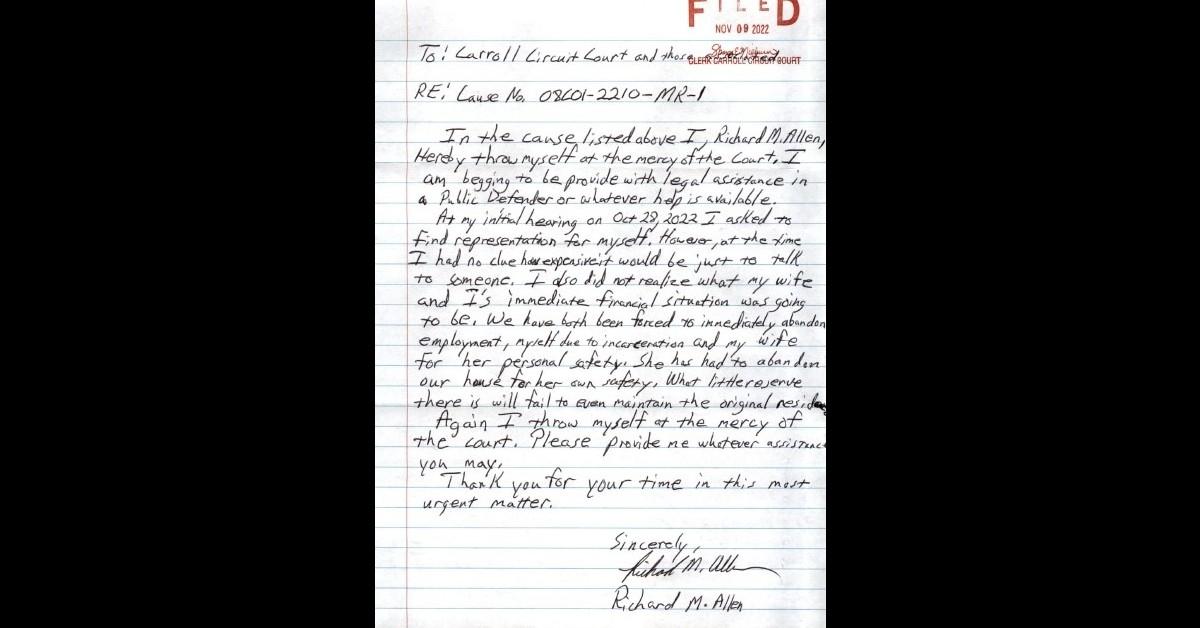 FILED
NOV 09 2022
CLERK CARROLL CIRCUIT COURT
To: Carroll Circuit Court and those
RE: Cause No. 08C01-2210-MR-1
In the cause listed above I, Richard M. Allen,
Hereby throw myself at the mercy of the Court. I
am begging to be provide with legal assistance in
a Public Defender or whatever help is available.
At my initial hearing on Oct 28, 2022 I asked to
find representation for myself. However, at the time
I had no clue how expensive it would be just to talk
to someone. I also did not realize what my wife
and I's immediate financial situation was going
to be. We have both been forced to immediately abandon
employment, myself due to incarceration and my wife
for her personal safety. She has had to abandon
our house for her own safety. What little reserve
there is will fail to even maintain the original
Again I throw myself at the mercy of
the court. Please provide me whatever assistanc
you may.
Thank you for your time in this most
urgent matter.
Sincerely,
Richard M. Allen
Richard M. Allen